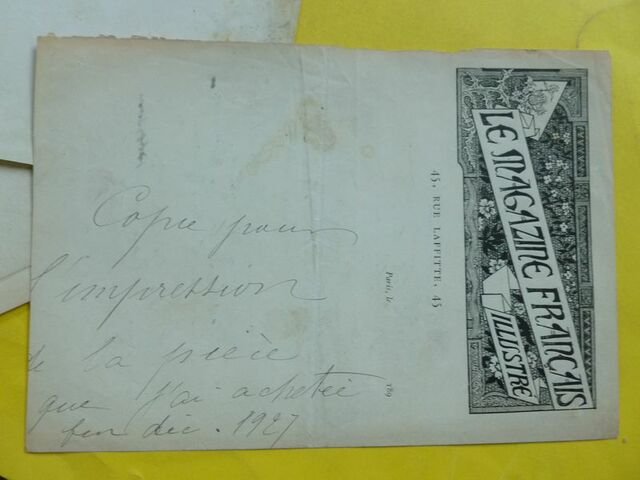 LE MAGAZINE FRANÇAIS
ILLUSTRÉ
45, RUE LAFFITTE, 45
Paris, le
189
Copie pour
l'impression
de la pièce
que j'ai achetée
fin déc. 1927